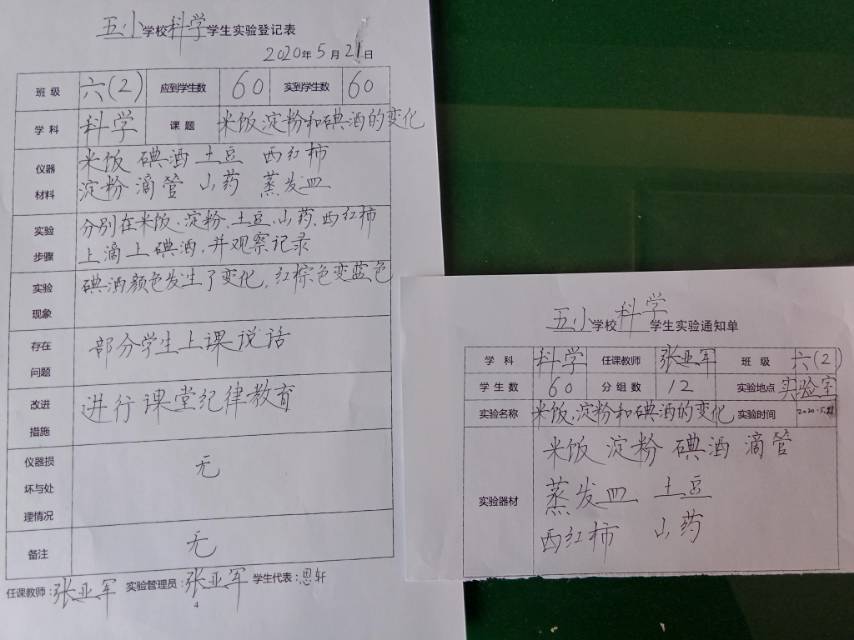 五小学校科学学生实验登记表
2020年5月21日
班级 六(2) 应到学生数 60 实到学生数 60
学科 科学 课题 米饭淀粉和碘酒的变化
仪器材料 米饭 碘酒 土豆 西红柿
淀粉 滴管 山药 蒸发皿
实验步骤 分别在米饭、淀粉、土豆、山药、西红柿
上滴上碘酒,并观察记录
实验现象 碘酒颜色发生了变化,红棕色变蓝色
存在问题 部分学生上课说话
改进措施 进行课堂纪律教育
仪器损坏与处理情况 无
备注 无
任课教师:张亚军 实验管理员:张亚军 学生代表:恩轩
4
五小学校科学学生实验通知单
学科 科学 任课教师 张亚军 班级 六(2)
学生数 60 分组数 12 实验地点 实验室
实验名称 米饭、淀粉和碘酒的变化 实验时间 2020.5.21
实验器材 米饭 淀粉 碘酒 滴管
蒸发皿 土豆
西红柿 山药